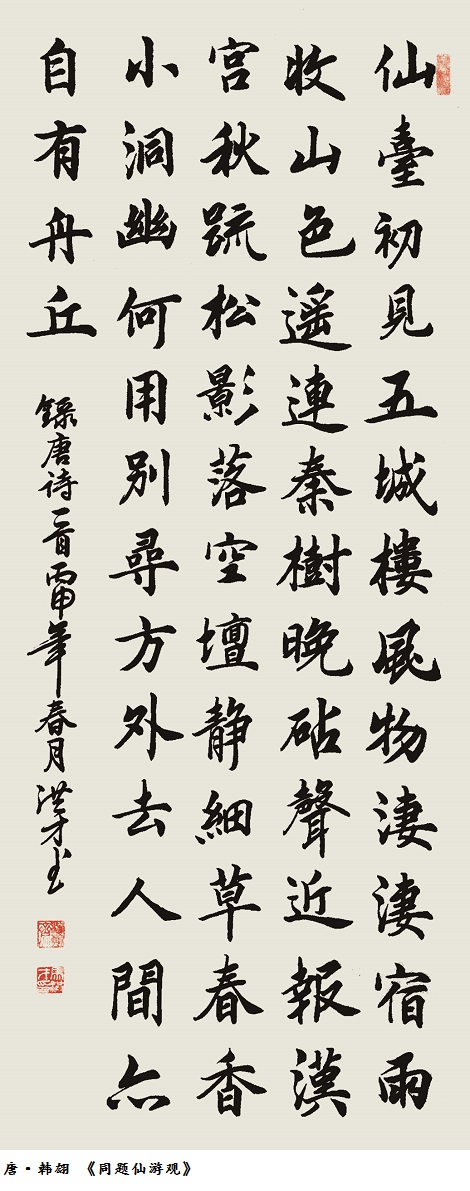 仙臺初見五城樓風物淒淒宿雨
收山色遥連秦樹晚砧聲近報漢
宮秋疏松影落空壇静細草春香
小洞幽何用别尋方外去人間亦
自有丹丘
録唐诗一首丙申年春月洪才书
唐·韩翃 《同题仙游观》